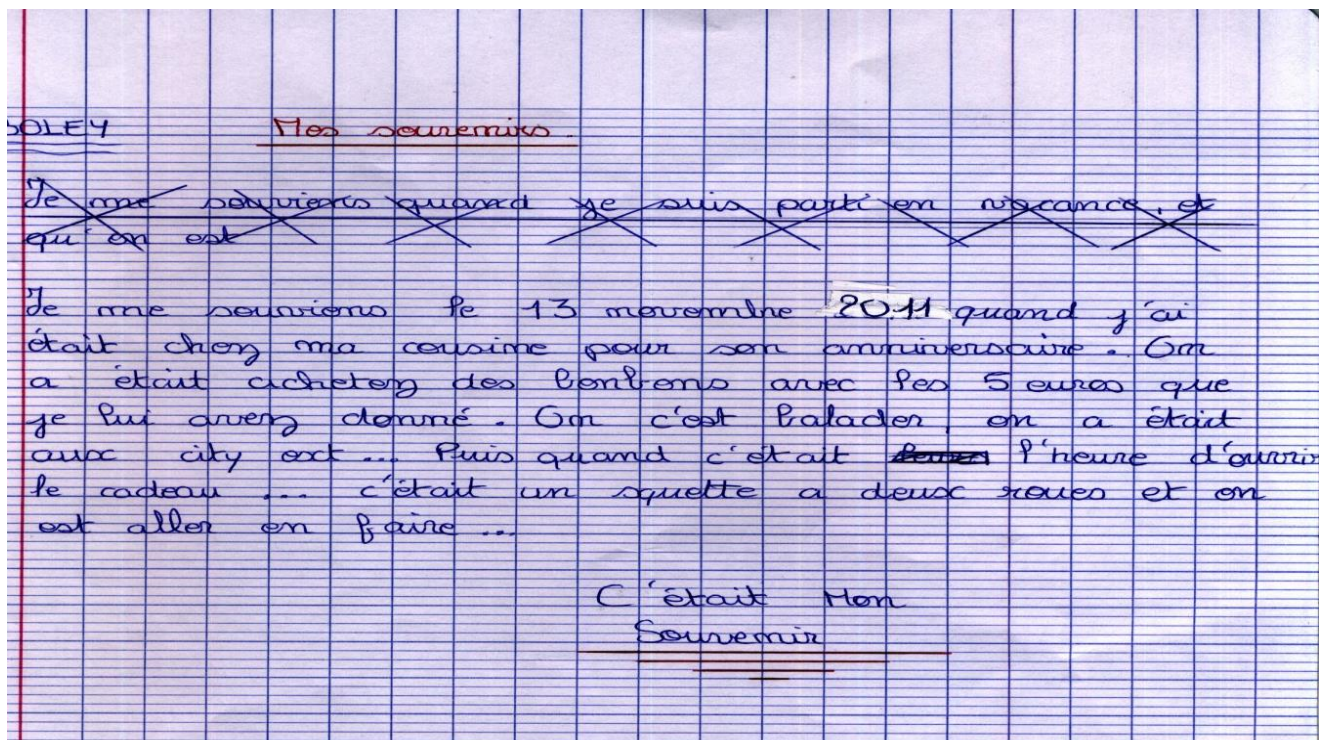 OLEY Mes souvenirs.
Je me souviens quand je suis parti en vacance, et
qu'on est
Je me souviens le 13 novembre 2011 quand j'ai
était chez ma cousine pour son anniversaire. On
a était achetez des bonbons avec les 5 euros que
je lui avez donné. On c'est balader, on a était
aux city ect... Puis quand c'était l'heure d'ouvrir
le cadeau ... c'était un squette a deux roues et on
est aller en faire...
C'était Mon
Souvenir